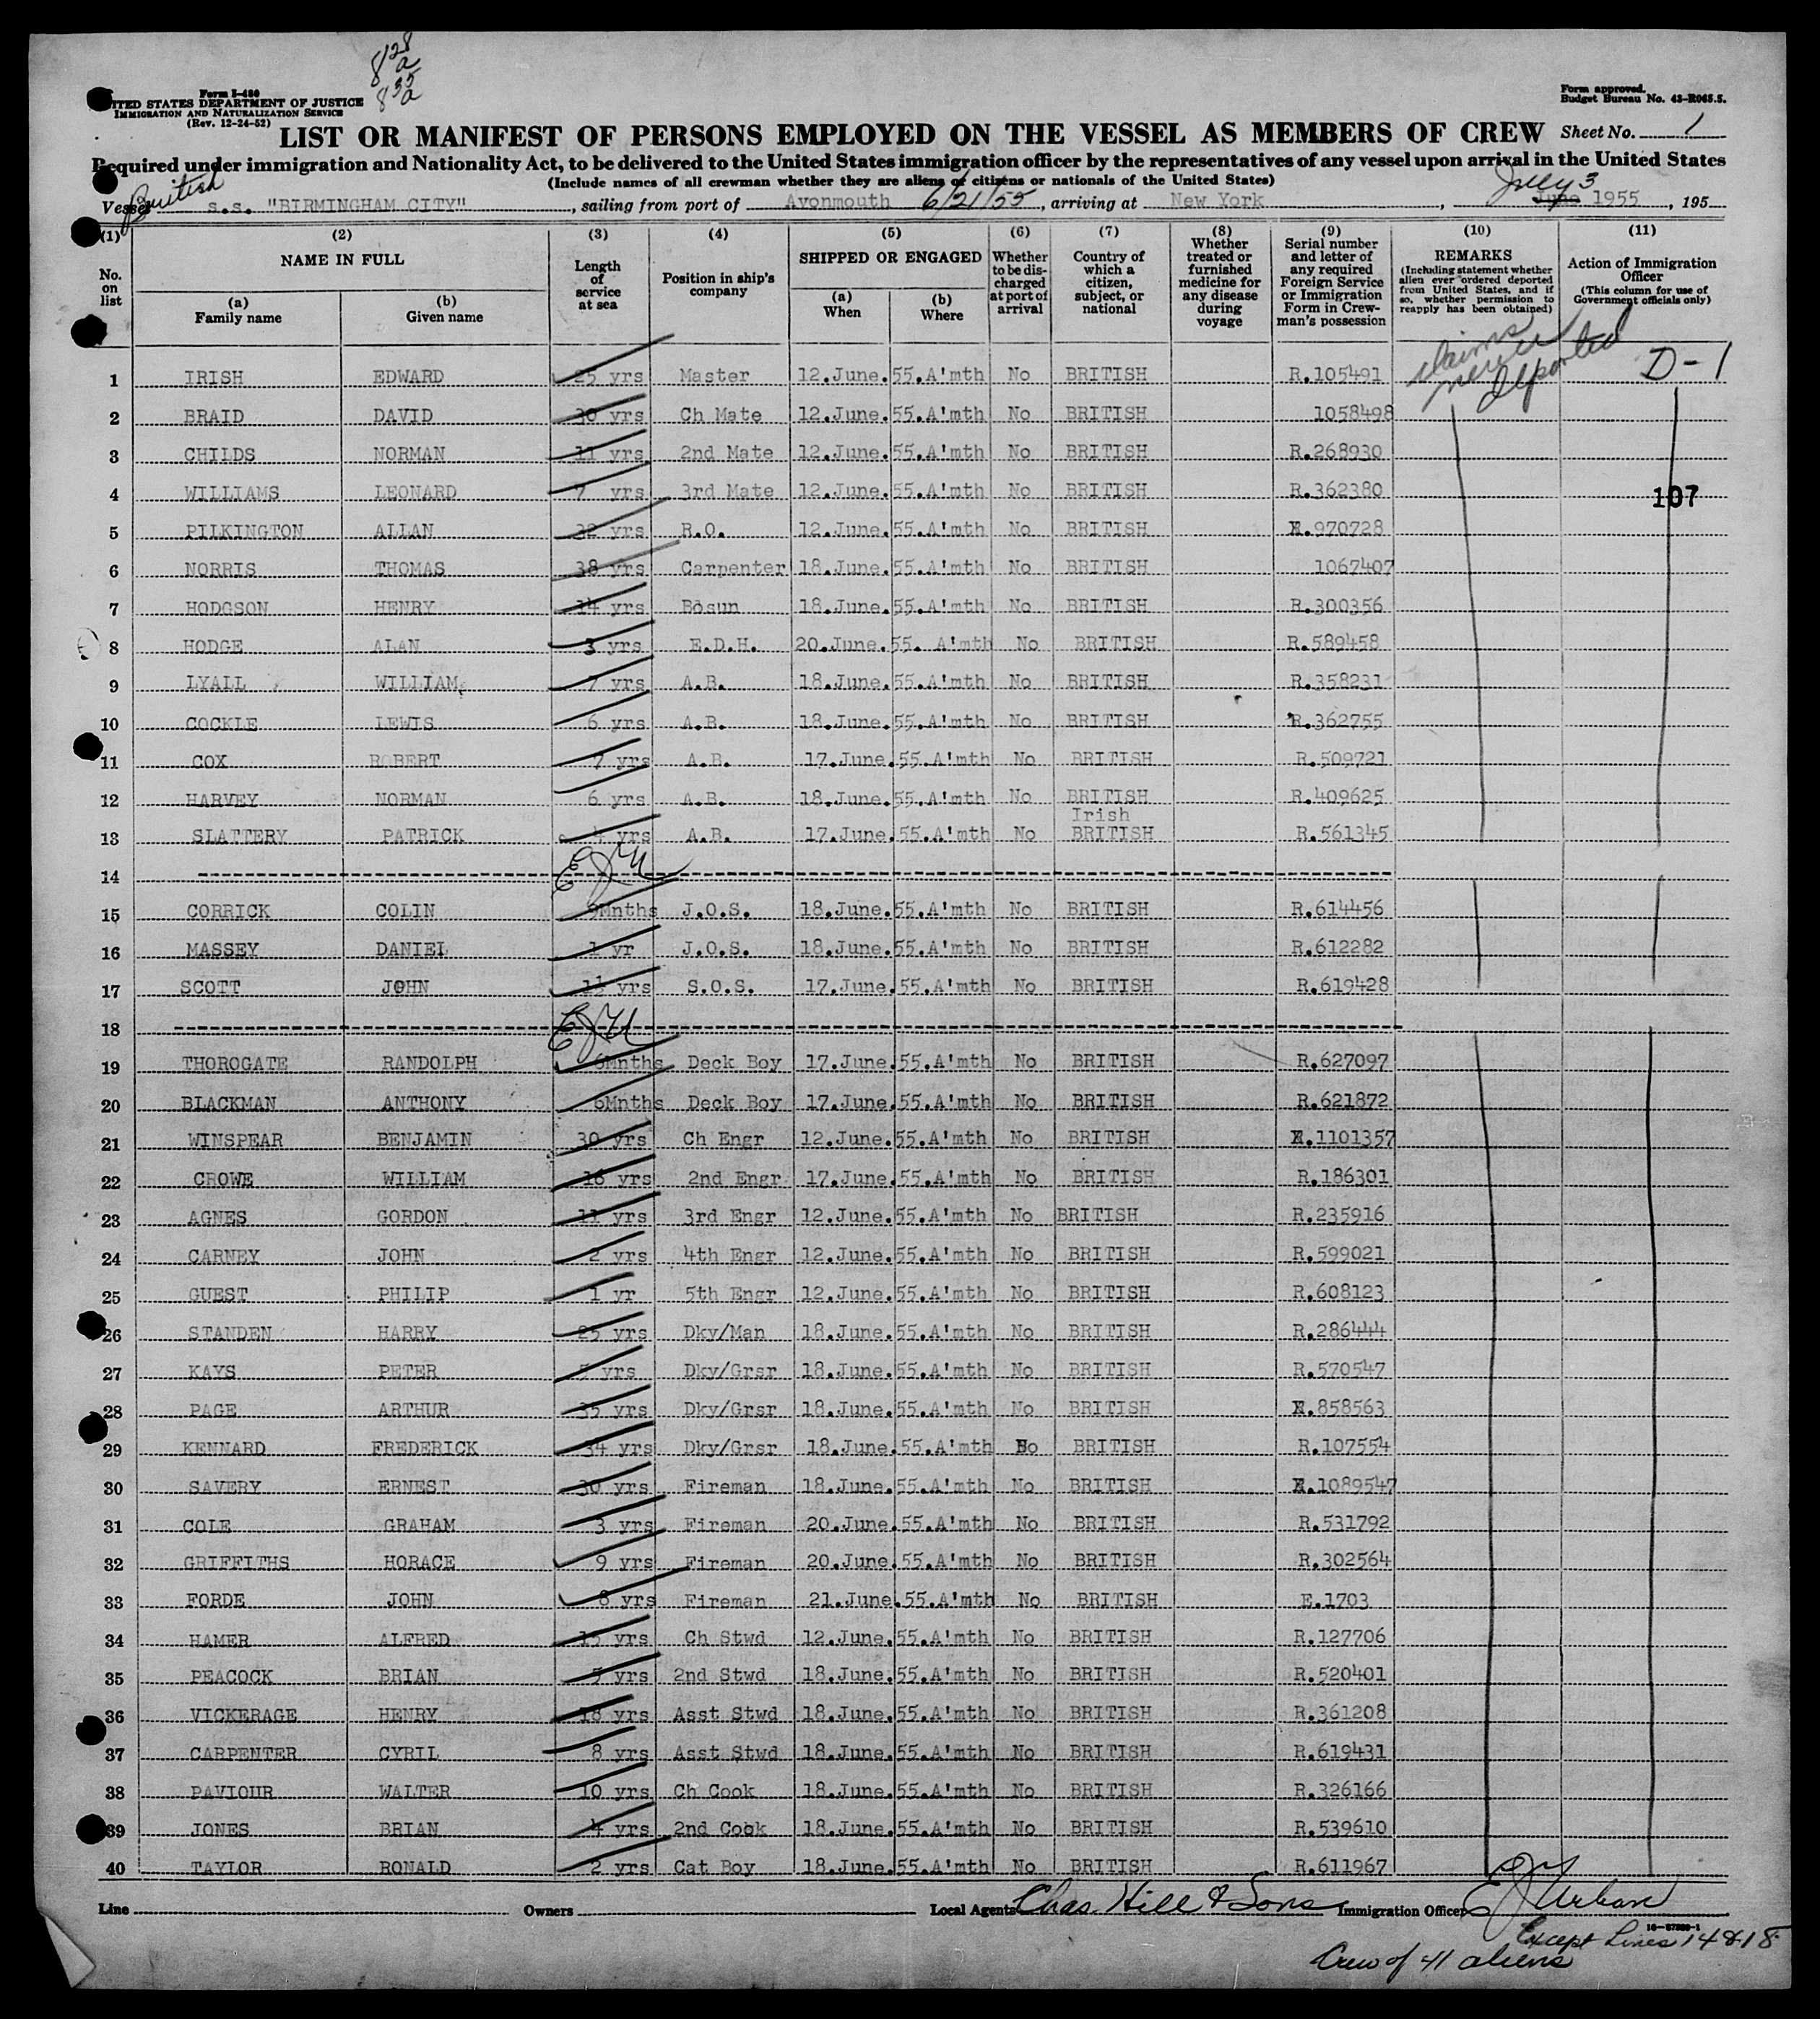 8 28 a
8 35 a
Form I-480
UNITED STATES DEPARTMENT OF JUSTICE
IMMIGRATION AND NATURALIZATION SERVICE
(Rev. 12-24-52)
Form approved.
Budget Bureau No. 43-R065.5.
LIST OR MANIFEST OF PERSONS EMPLOYED ON THE VESSEL AS MEMBERS OF CREW Sheet No. 1
Required under immigration and Nationality Act, to be delivered to the United States immigration officer by the representatives of any vessel upon arrival in the United States
(Include names of all crewman whether they are aliens or citizens or nationals of the United States)
British
Vessel s.s. "BIRMINGHAM CITY", sailing from port of Avonmouth 6/21/55, arriving at New York, July 3 June 1955, 195
(1) No. on list
(2) NAME IN FULL (a) Family name (b) Given name
(3) Length of service at sea
(4) Position in ship's company
(5) SHIPPED OR ENGAGED (a) When (b) Where
(6) Whether to be discharged at port of arrival
(7) Country of which a citizen, subject, or national
(8) Whether treated or furnished medicine for any disease during voyage
(9) Serial number and letter of any required Foreign Service or Immigration Form in Crewman's possession
(10) REMARKS (Including statement whether alien ever ordered deported from United States, and if so, whether permission to reapply has been obtained)
(11) Action of Immigration Officer (This column for use of Government officials only)
claims never deported
1 IRISH EDWARD 25 yrs Master 12.June.55.A'mth No BRITISH R.105491 D-1
2 BRAID DAVID 30 yrs Ch Mate 12.June.55.A'mth No BRITISH 1058498
3 CHILDS NORMAN 11 yrs 2nd Mate 12.June.55.A'mth No BRITISH R.268930
4 WILLIAMS LEONARD 7 yrs 3rd Mate 12.June.55.A'mth No BRITISH R.362380 107
5 PILKINGTON ALLAN 32 yrs R.O. 12.June.55.A'mth No BRITISH .970728
6 NORRIS THOMAS 38 yrs Carpenter 18.June.55.A'mth No BRITISH 1067407
7 HODGSON HENRY 14 yrs Bosun 18.June.55.A'mth No BRITISH R.300356
8 HODGE ALAN 3 yrs E.D.H. 20.June.55. A'mth No BRITISH R.589458
9 LYALL WILLIAM 7 yrs A.B. 18.June.55.A'mth No BRITISH R.358231
10 COCKLE LEWIS 6 yrs A.B. 18.June.55.A'mth No BRITISH R.362755
11 COX ROBERT 7 yrs A.B. 17.June.55.A'mth No BRITISH R.509721
12 HARVEY NORMAN 6 yrs A.B. 18.June.55.A'mth No BRITISH R.409625
Irish
13 SLATTERY PATRICK 4 yrs A.B. 17.June.55.A'mth No BRITISH R.561345
14 EJU
15 CORRICK COLIN 9Mnths J.O.S. 18.June.55.A'mth No BRITISH R.614456
16 MASSEY DANIEL 1 yr J.O.S. 18.June.55.A'mth No BRITISH R.612282
17 SCOTT JOHN 1½ yrs S.O.S. 17.June.55.A'mth No BRITISH R.619428
18 EJU
19 THOROGATE RANDOLPH 6Mnths Deck Boy 17.June.55.A'mth No BRITISH R.627097
20 BLACKMAN ANTHONY 6Mnths Deck Boy 17.June.55.A'mth No BRITISH R.621872
21 WINSPEAR BENJAMIN 30 yrs Ch Engr 12.June.55.A'mth No BRITISH .1101357
22 CROWE WILLIAM 16 yrs 2nd Engr 17.June.55.A'mth No BRITISH R.186301
23 AGNES GORDON 11 yrs 3rd Engr 12.June.55.A'mth No BRITISH R.235916
24 CARNEY JOHN 2 yrs 4th Engr 12.June.55.A'mth No BRITISH R.599021
25 GUEST PHILIP 1 yr 5th Engr 12.June.55.A'mth No BRITISH R.608123
26 STANDEN HARRY 25 yrs Dky/Man 18.June.55.A'mth No BRITISH R.286444
27 KAYS PETER yrs Dky/Grsr 18.June.55.A'mth No BRITISH R.570547
28 PAGE ARTHUR 35 yrs Dky/Grsr 18.June.55.A'mth No BRITISH .858563
29 KENNARD FREDERICK 34 yrs Dky/Grsr 18.June.55.A'mth No BRITISH R.107554
30 SAVERY ERNEST 30 yrs Fireman 18.June.55.A'mth No BRITISH .1089547
31 COLE GRAHAM 3 yrs Fireman 20.June.55.A'mth No BRITISH R.531792
32 GRIFFITHS HORACE 9 yrs Fireman 20.June.55.A'mth No BRITISH R.302564
33 FORDE JOHN 8 yrs Fireman 21.June.55.A'mth No BRITISH E.1703
34 HAMER ALFRED 15 yrs Ch Stwd 12.June.55.A'mth No BRITISH R.127706
35 PEACOCK BRIAN yrs 2nd Stwd 18.June.55.A'mth No BRITISH R.520401
36 VICKERAGE HENRY 18 yrs Asst Stwd 18.June.55.A'mth No BRITISH R.361208
37 CARPENTER CYRIL 8 yrs Asst Stwd 18.June.55.A'mth No BRITISH R.619431
38 PAVIOUR WALTER 10 yrs Ch Cook 18.June.55.A'mth No BRITISH R.326166
39 JONES BRIAN 4 yrs 2nd Cook 18.June.55.A'mth No BRITISH R.539610
40 TAYLOR RONALD 2 yrs Cat Boy 18.June.55.A'mth No BRITISH R.611967
Line Owners Local Agents Chas. Hill & Sons Immigration Officer EJ Urban
Except Lines 14 & 18
Crew of 41 aliens